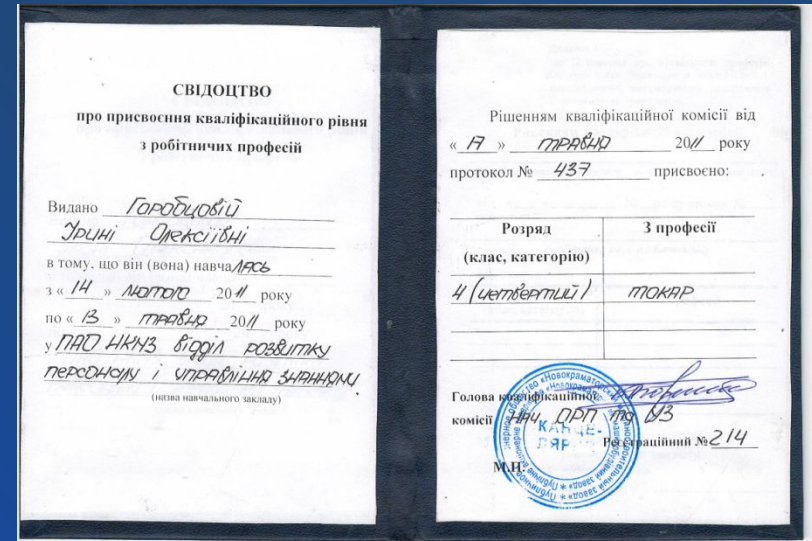 СВІДОЦТВО
про присвоєння кваліфікаційного рівня
з робітничих професій
Видано Горобцовій
Ірині Олексіївні
в тому, що він (вона) навчалась
з « 14 » лютого 2011 року
по « 13 » травня 2011 року
у ПАО НКМЗ відділ розвитку
персоналу і управління знаннями
(назва навчального закладу)
Рішенням кваліфікаційної комісії від
« 17 » травня 2011 року
протокол № 437 присвоєно:
Розряд З професії
(клас, категорію)
4 (четвертий) токар
Голова кваліфікаційної
комісії Нач. ОРП та УЗ
КАНЦЕ-
ЛЯРІЯ
Реєстраційний № 214
М.П.